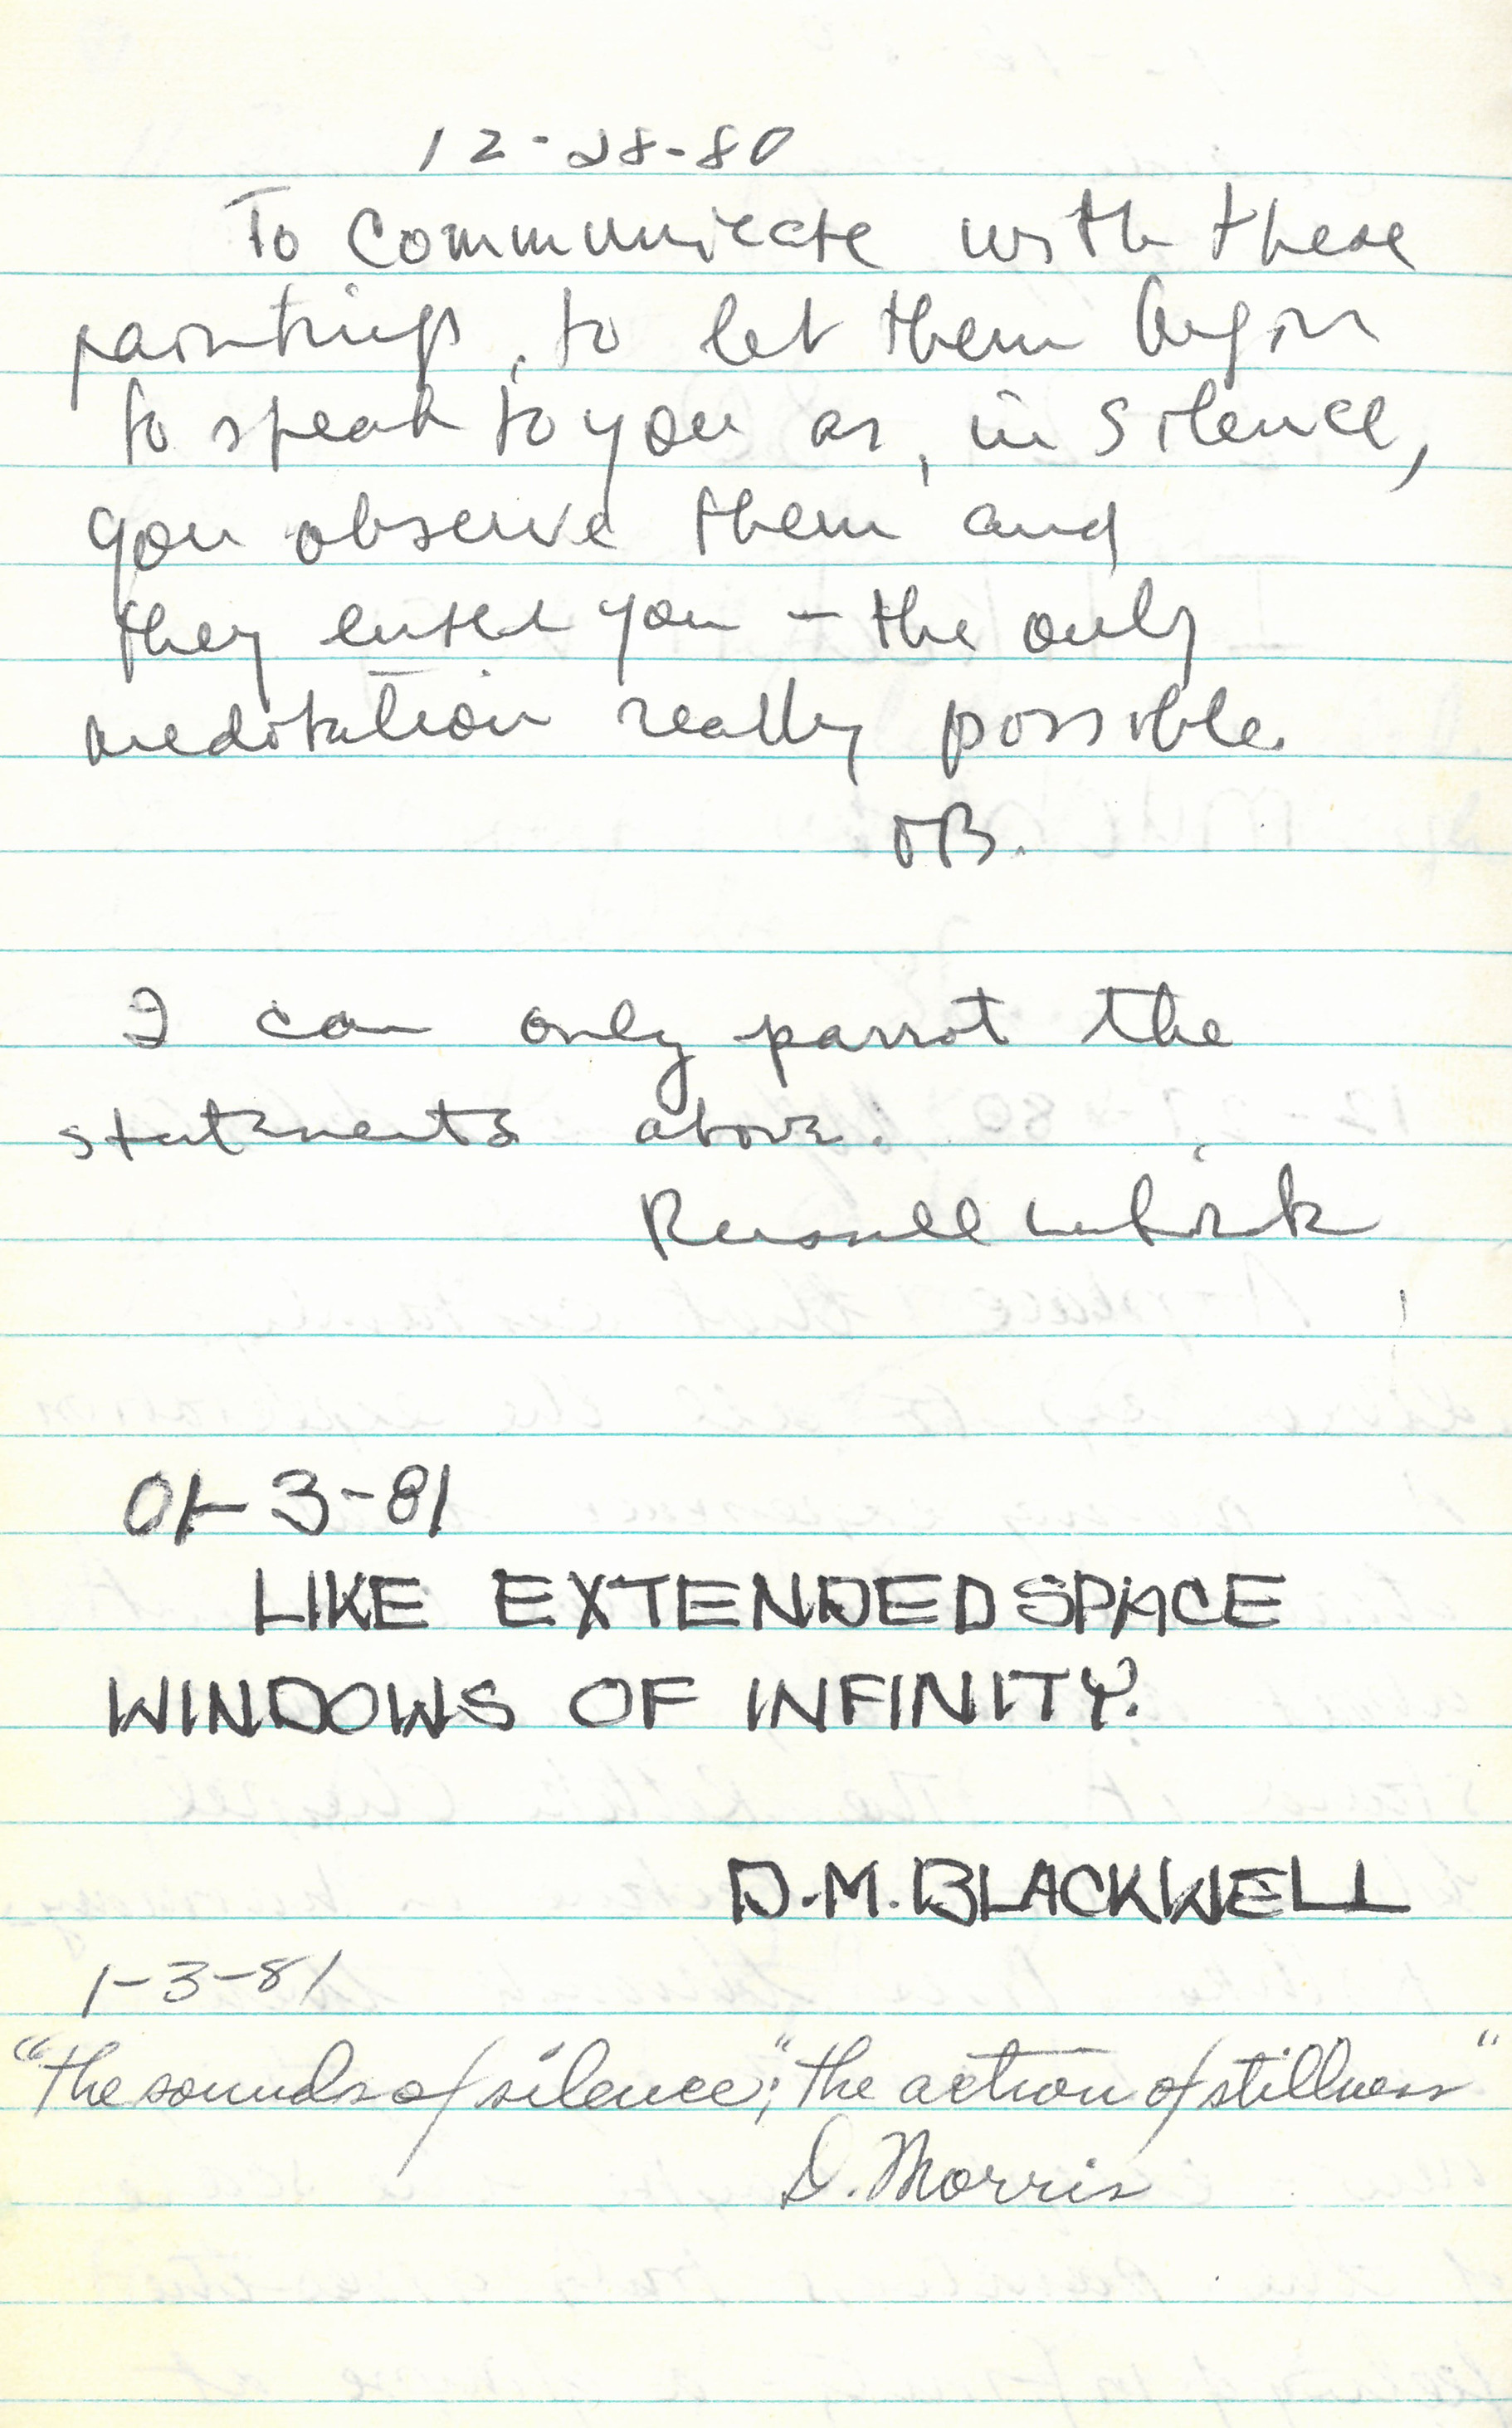 12-28-80
To communicate with these
paintings, to let them begin
to speak to you as, in silence,
you observe them and
they enter you — the only
meditation really possible.
I can only parrot the
statements above.
Russell
01-3-81
LIKE EXTENDED SPACE
WINDOWS OF INFINITY.
D.M. BLACKWELL
1-3-81
"the sounds of silence;" "the action of stillness"
D. Morris